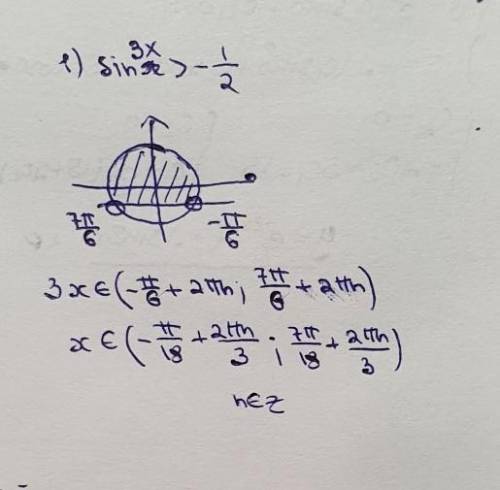 1) sin 3x > -1/2
7π/6 -π/6
3x ∈ (-π/6 + 2πn; 7π/6 + 2πn)
x ∈ (-π/18 + 2πn/3 ; 7π/18 + 2πn/3)
n∈z